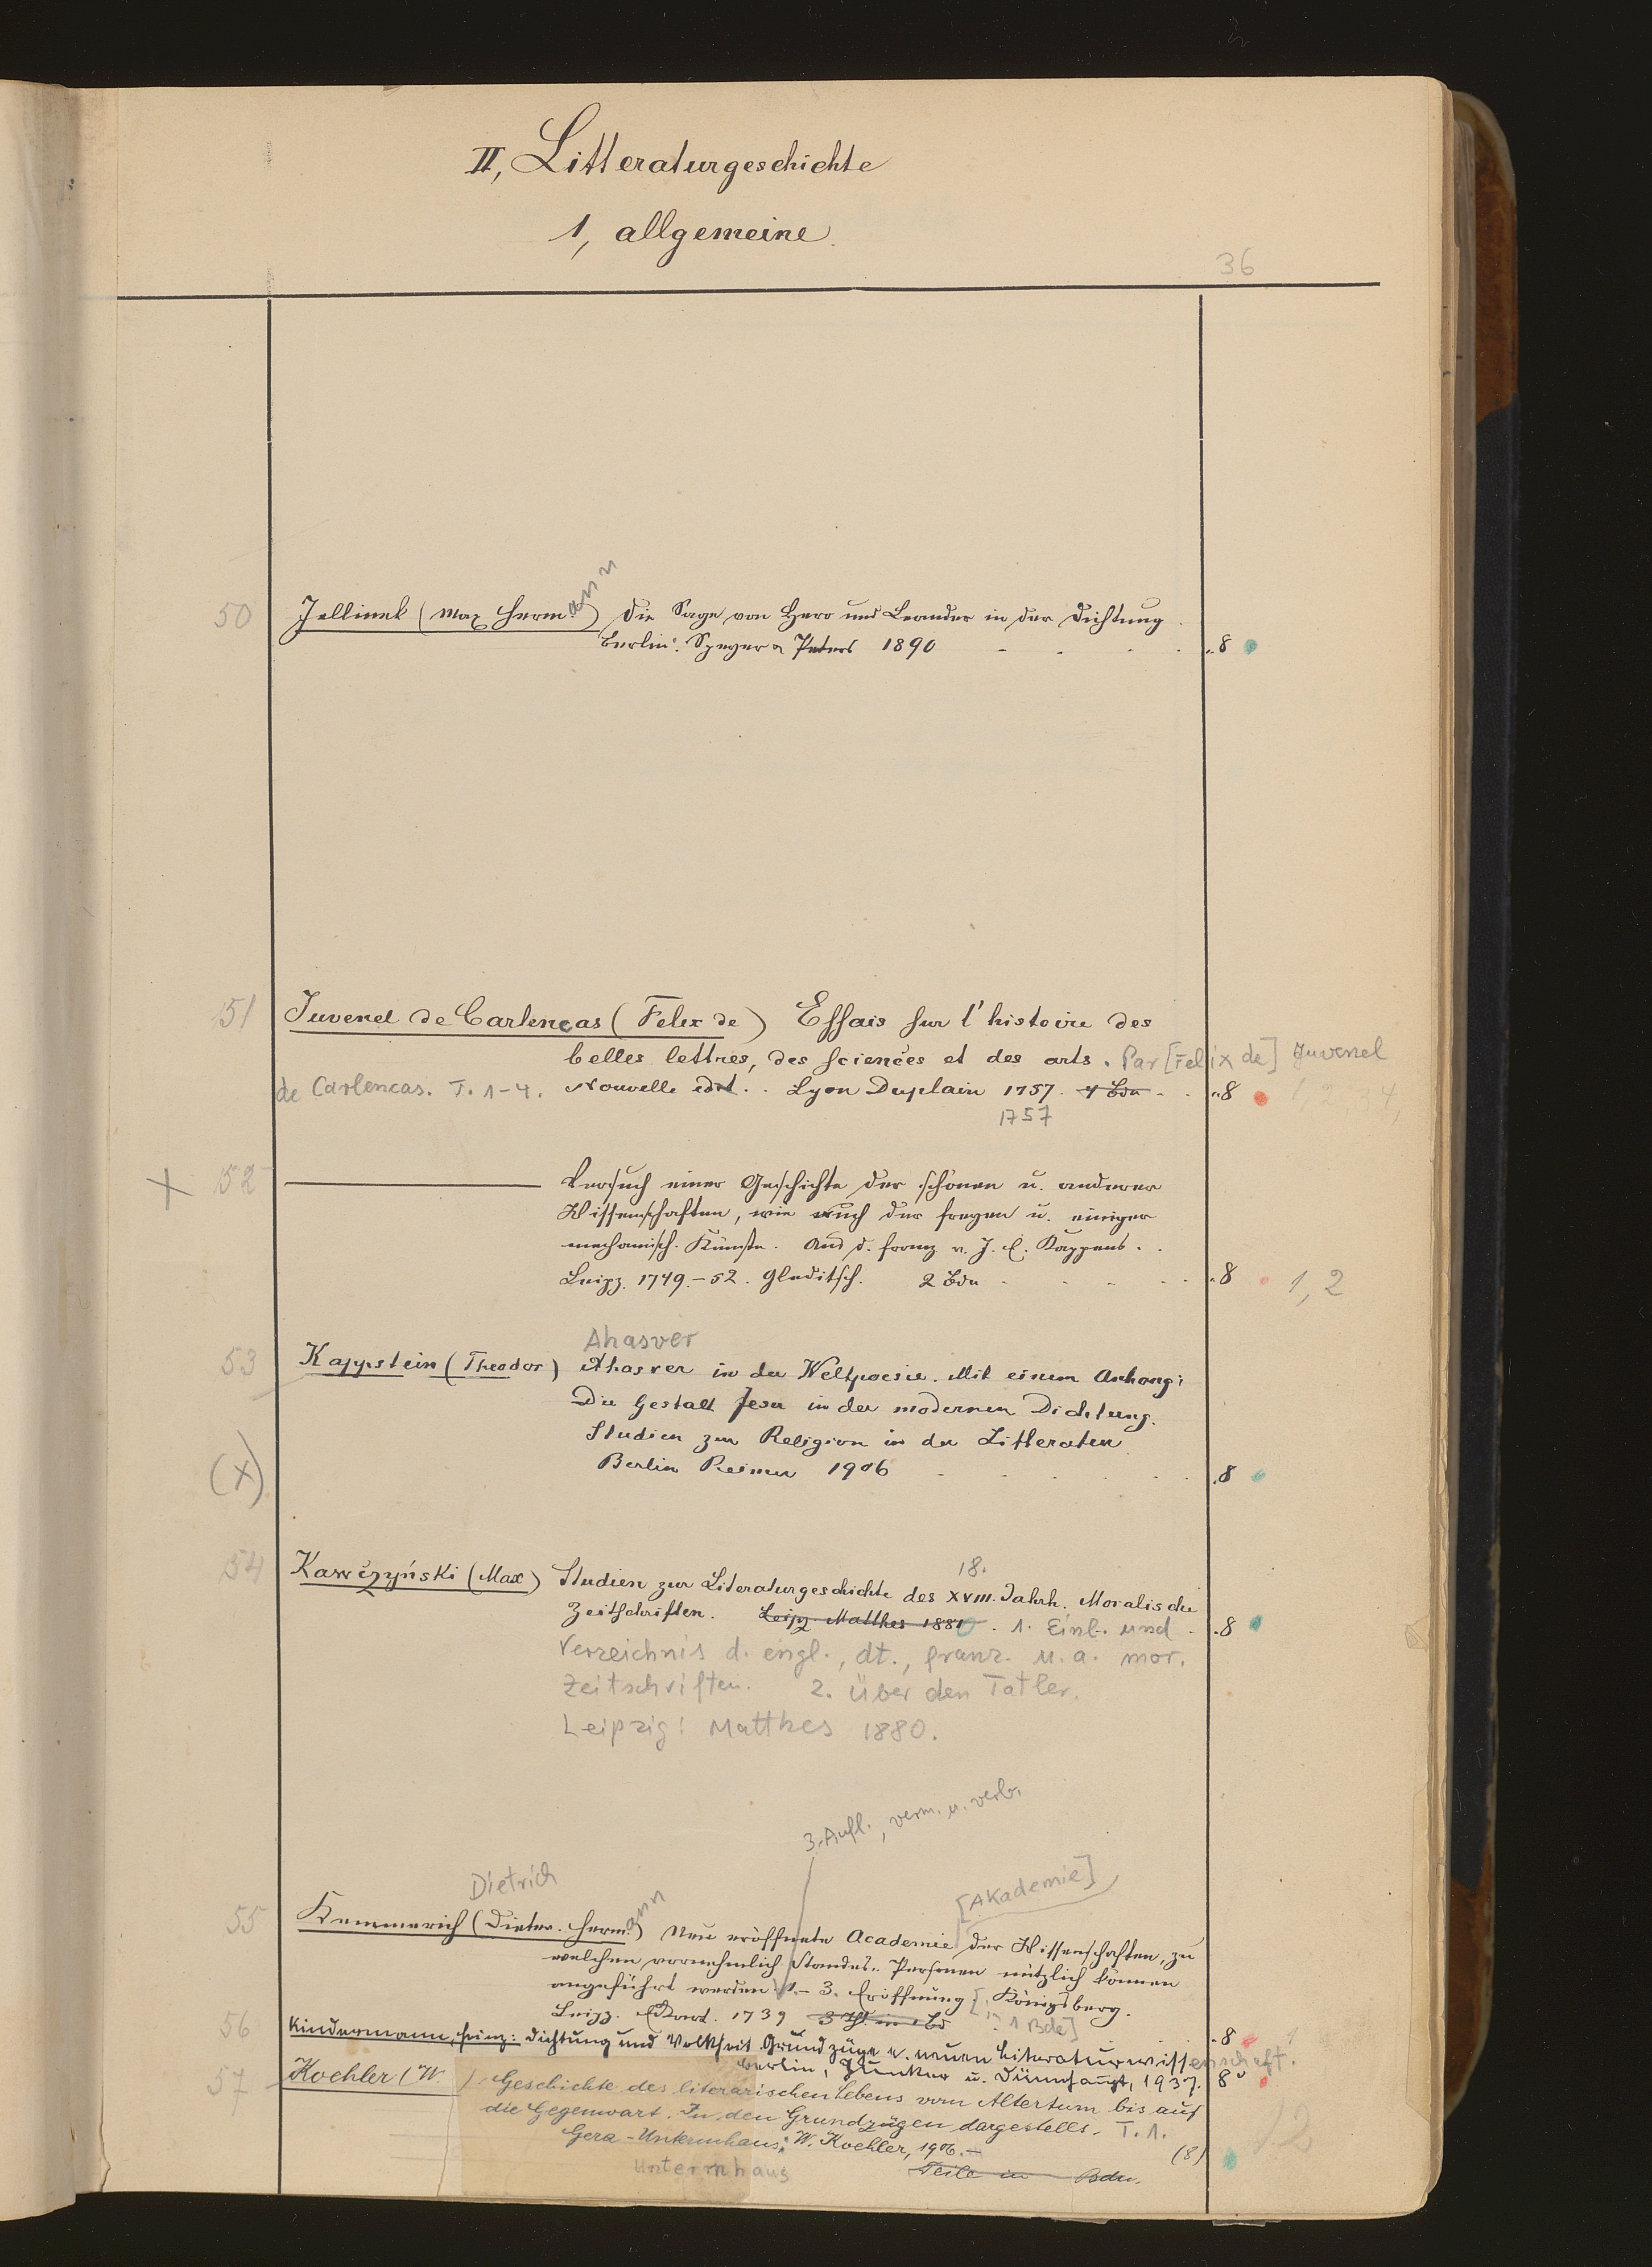 II, Litteraturgeschichte
1, allgemeine.
36
50 Jellinek (Max Hermann) Die Sage von Hero und Leander in der Dichtung.
Berlin: Speyer & Peters 1890 . . . . „8
51 Juvenel de Carlencas (Felix de) Essais sur l'histoire des
belles lettres, des sciences et des arts. Par [Felix de] Juvenel
de Carlencas. T. 1-4. Nouvelle edit. . Lyon Duplain 1757. 4 Bde . . „8 1,2,3,4,
1757
+ 52 ——— Versuch einer Geschichte der schönen u. anderer
Wissenschaften, wie auch der freyen u. einiger
mechanisch. Künste. Aus d. franz v. J. E. Kappens. .
Leipz. 1749.-52. Gleditsch. 2 Bde . . . . „8 1, 2
Ahasver
53 Kappstein (Theodor) Ahasver in der Weltpoesie. Mit einem Anhang:
Die Gestalt Jesu in der modernen Dichtung.
Studien zur Religion in der Litteratur
(x) Berlin Reimer 1906 . . . . . . „8
18.
54 Kawczyński (Max) Studien zur Literaturgeschichte des XVIII. Jahrh. Moralische
Zeitschriften. Leipz. Matthes 1880. 1. Einl. und . „8
Verzeichnis d. engl., dt., franz. u. a. mor.
Zeitschriften. 2. Über den Tatler.
Leipzig: Matthes 1880.
3. Aufl., verm. u. verb.
Dietrich [Akademie]
55 Kemmerich (Dieter. Hermann) Neu eröffnete Academie der Wissenschaften, zu
welchen vornehmlich Standes-Personen nützlich können
angeführt werden 1.- 3. Eröffnung [in 1 Bde] Königsberg.
Leipz. Eckart. 1739 3 Thl. in 1 Bd „8 1
56 Kindermann, Heinz: Dichtung und Volkheit. Grundzüge e. neuen Literaturwissenschaft.
Berlin, Junker u. Dünnhaupt, 1937. 8°
57 Koehler (W. ). Geschichte des literarischen Lebens vom Altertum bis auf
die Gegenwart. In den Grundzügen dargestellt. T. 1. 1.2
Gera-Untermhaus: W. Koehler, 1906.— (8)
Untermhaus Teile in Bdn.